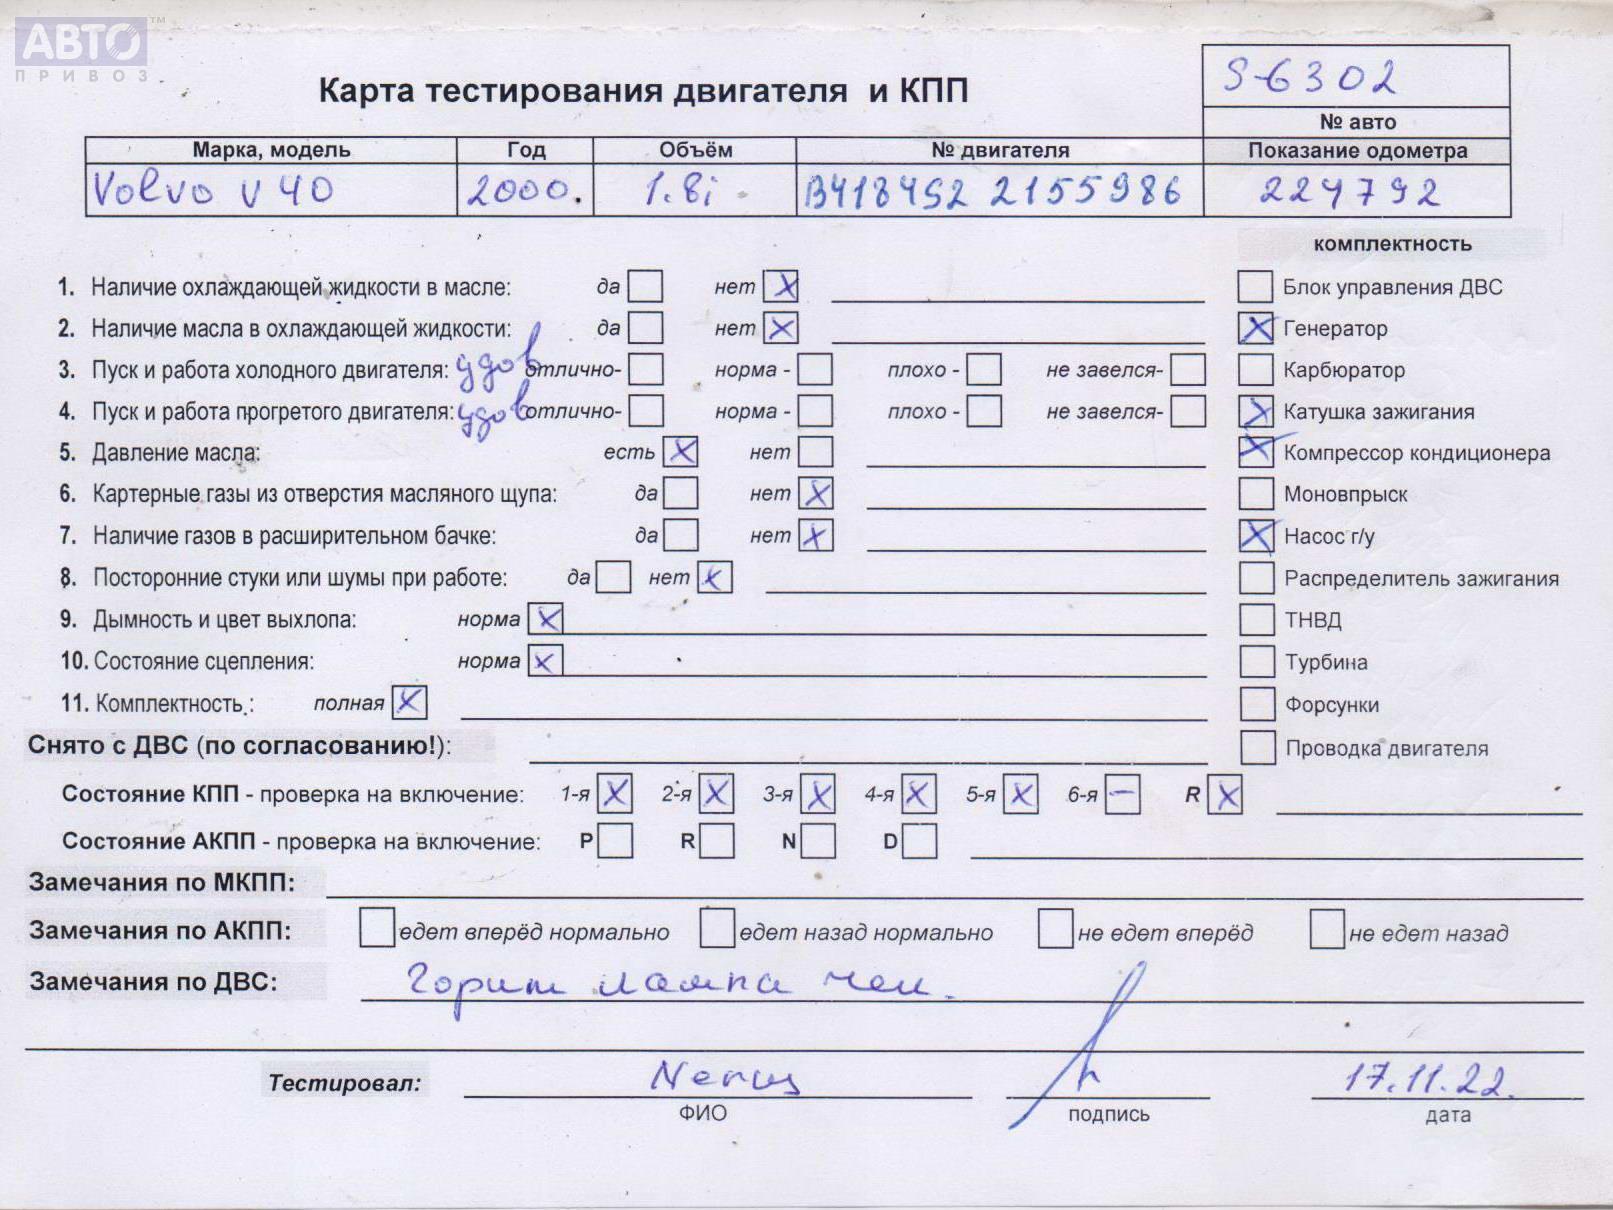 АВТО™
ПРИВОЗ
S-6302
Карта тестирования двигателя и КПП
№ авто
Марка, модель Год Объём № двигателя Показание одометра
Volvo V40 2000. 1.8i B4184S2 2155986 224792
комплектность
1. Наличие охлаждающей жидкости в масле: да нет X Блок управления ДВС
2. Наличие масла в охлаждающей жидкости: да нет X X Генератор
3. Пуск и работа холодного двигателя: удов отлично- норма - плохо - не завелся- Карбюратор
4. Пуск и работа прогретого двигателя: удов отлично- норма - плохо - не завелся- X Катушка зажигания
5. Давление масла: есть X нет X Компрессор кондиционера
6. Картерные газы из отверстия масляного щупа: да нет X Моновпрыск
7. Наличие газов в расширительном бачке: да нет X X Насос г/у
8. Посторонние стуки или шумы при работе: да нет X Распределитель зажигания
9. Дымность и цвет выхлопа: норма X ТНВД
10. Состояние сцепления: норма X Турбина
11. Комплектность.: полная X Форсунки
Снято с ДВС (по согласованию!): Проводка двигателя
Состояние КПП - проверка на включение: 1-я X 2-я X 3-я X 4-я X 5-я X 6-я — R X
Состояние АКПП - проверка на включение: P R N D
Замечания по МКПП:
Замечания по АКПП: едет вперёд нормально едет назад нормально не едет вперёд не едет назад
Замечания по ДВС: Горит лампа чек.
Тестировал: 17.11.22.
ФИО подпись дата